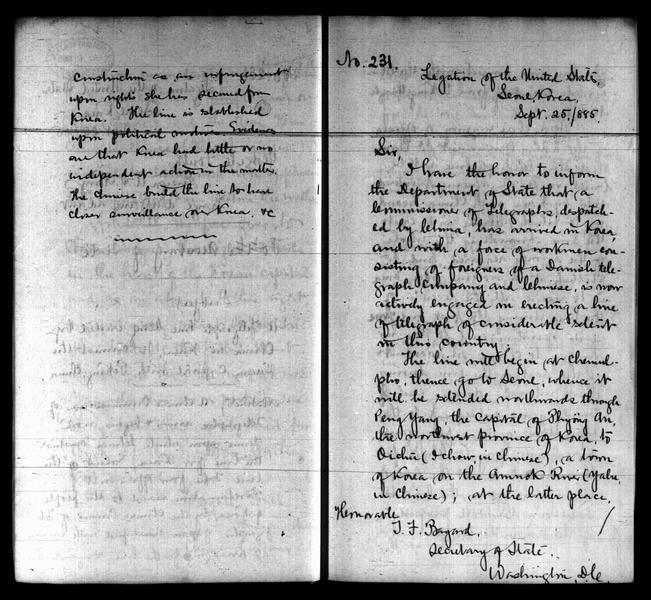 construction as an infringement
upon rights she has secured from
Korea. The line is established
upon political motives. Evidences
are that Korea had little or no
independent action in the matter.
The Chinese build the line to have
closer surveillance over Korea, &c
No. 231.
Legation of the United States,
Seoul, Korea,
Sept. 25. 1885.
Sir,
I have the honor to inform
the Department of State that a
Commissioner of Telegraphs, despatch-
ed by China, has arrived in Korea,
and with a force of workmen con-
sisting of foreigners of a Danish tele-
graph company and Chinese, is now
actively engaged in erecting a line
of telegraph of considerable extent
in this country.
The line will begin at Chemul-
pho, thence go to Seoul, whence it
will be extended northwards through
Peng Yang, the capital of Phyöng An,
the northwest province of Korea, to
Oichu (I chow, in Chinese), a town
of Korea on the Amnok River (Yalu,
in Chinese); at the latter place,
Honorable
T. F. Bayard,
Secretary of State.
Washington, D.C.